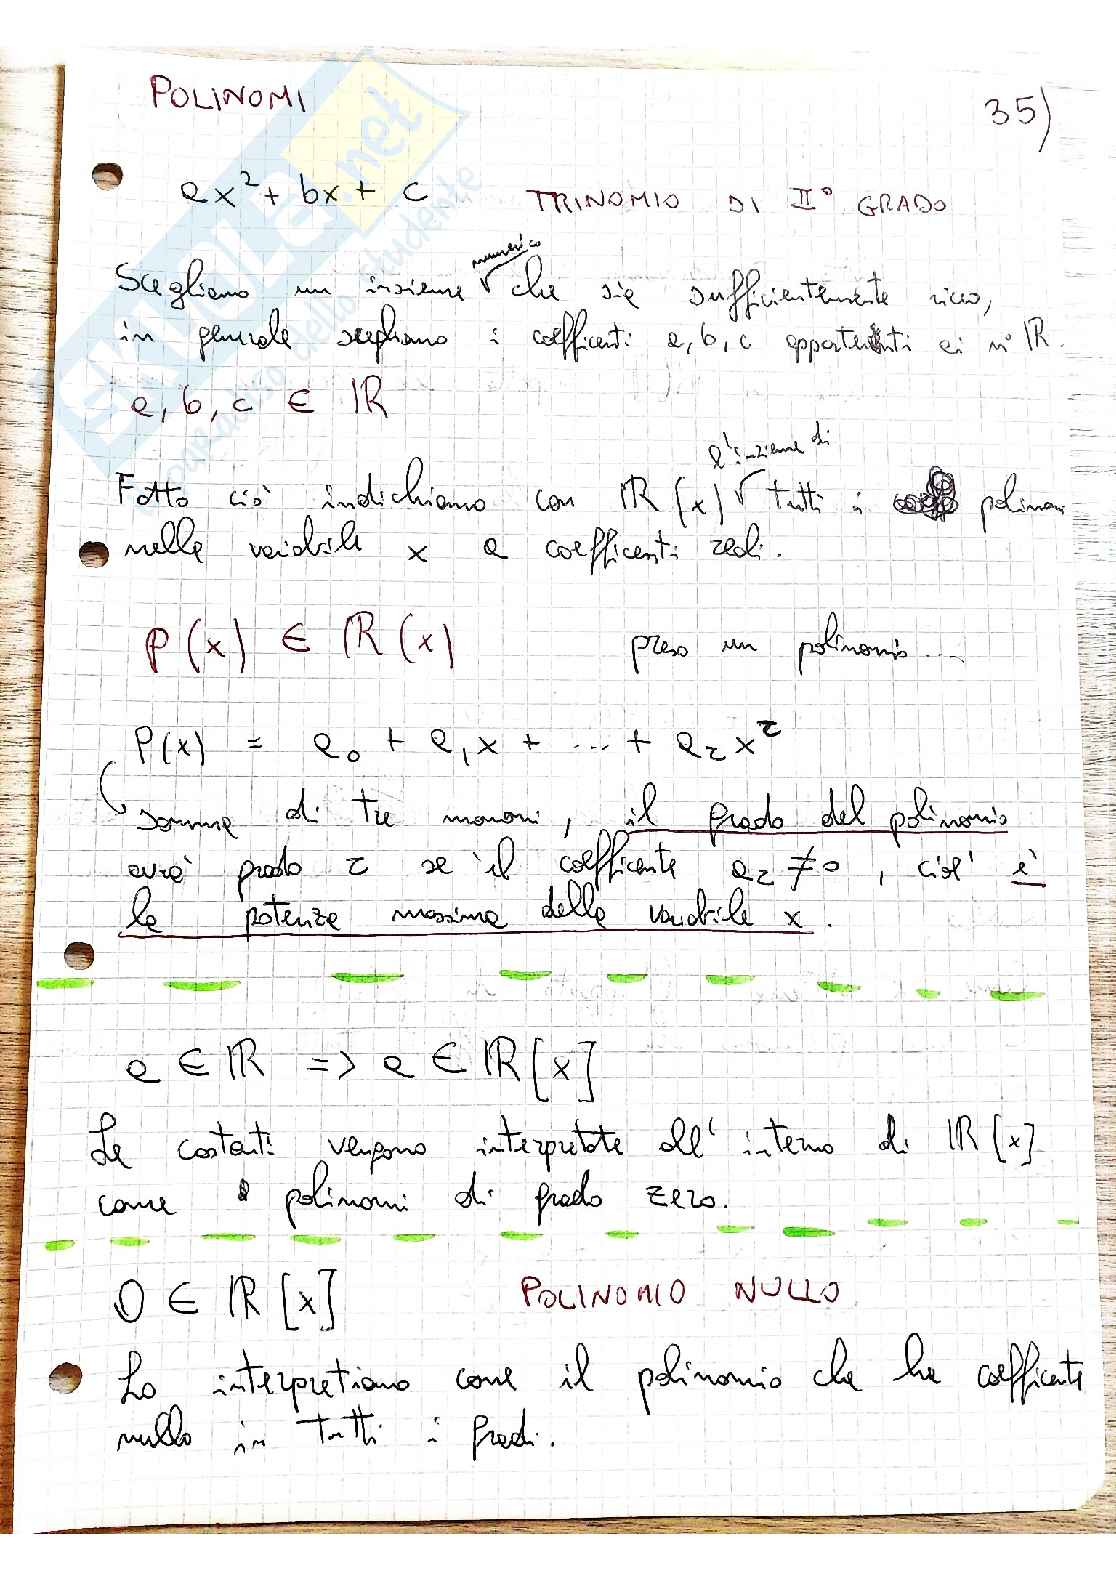 POLINOMI
35)
ax² + bx + c TRINOMIO DI II° GRADO
numerico
Scegliamo un insieme che sia sufficientemente ricco,
in generale scegliamo i coefficenti a, b, c appartenenti ai n° ℝ.
a, b, c ∈ ℝ
l'insieme di
Fatto ciò indichiamo con ℝ(x) tutti i polinomi
nella variabile x a coefficenti reali.
P(x) ∈ ℝ(x) preso un polinomio...
P(x) = a₀ + a₁x + ... + a_r x^r
somma di tre monomi, il grado del polinomio
avrà grado r se il coefficente a_r ≠ 0, cioè è
la potenza massima della variabile x.
a ∈ ℝ => a ∈ ℝ[x]
Le costanti vengono interpretate all'interno di ℝ[x]
come polinomi di grado zero.
0 ∈ ℝ[x] POLINOMIO NULLO
Lo interpretiamo come il polinomio che ha coefficente
nullo in tutti i gradi.
SKUOLA.net